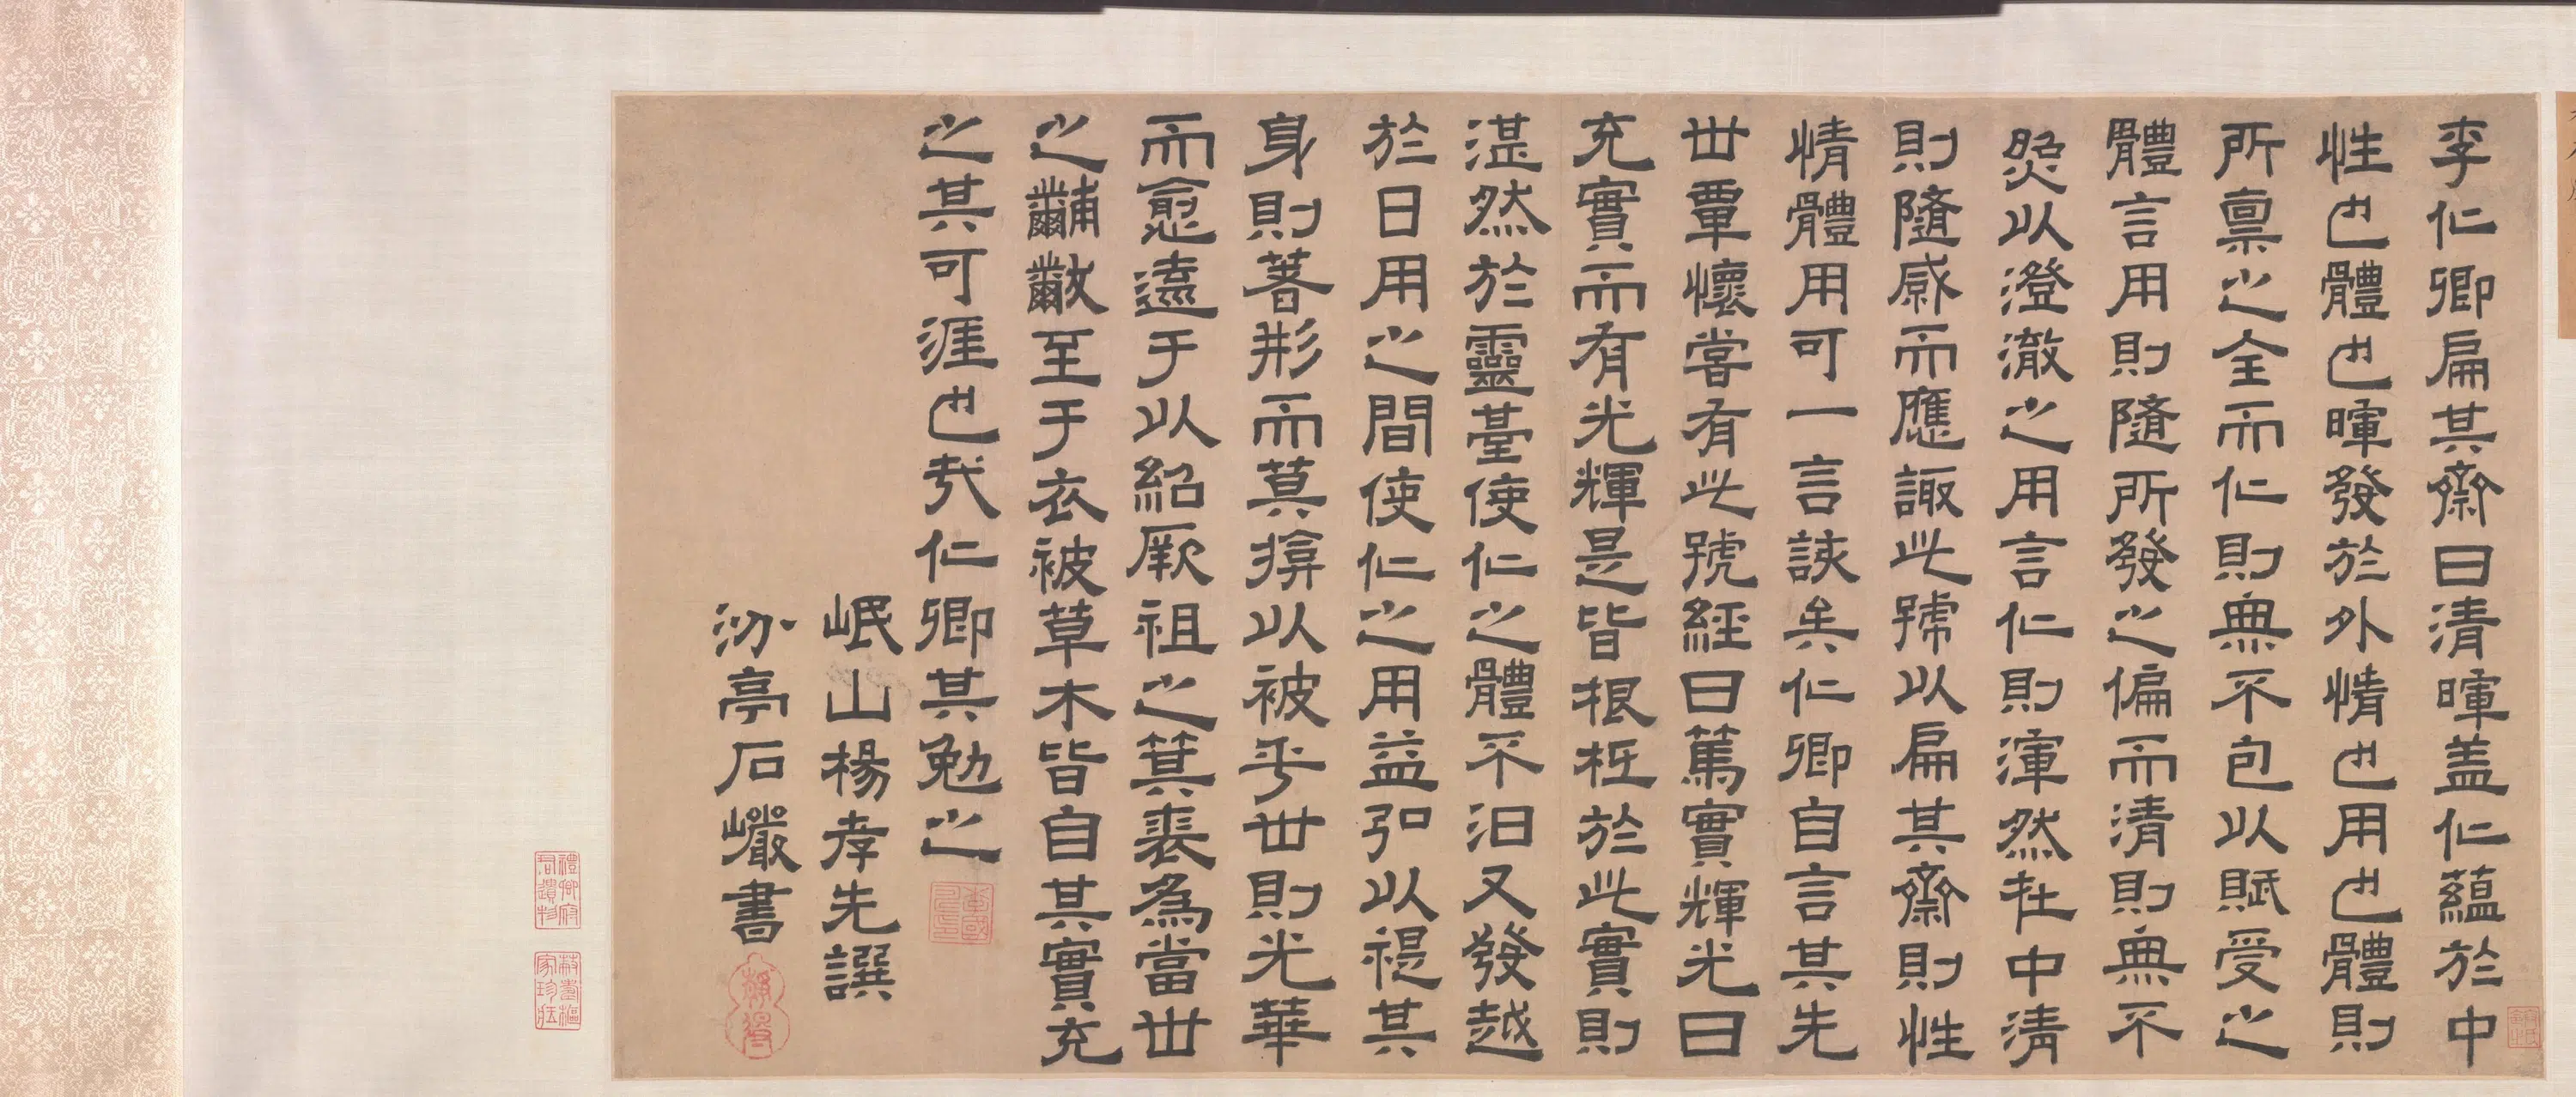 李仁卿扁其齋曰清暉盖仁蘊於中
性也體也暉發於外情也用也體則
所禀之全而仁則無不包以賦受之
體言用則隨所發之偏而清則無不
炤以澄澈之用言仁則渾然在中清
則隨感而應諏此號以扁其齋則性
情體用可一言該矣仁卿自言其先
世覃懷嘗有此號經曰篤實輝光曰
充實而有光輝是皆根柢於此實則
湛然於靈臺使仁之體不汩又發越
於日用之間使仁之用益弘以禔其
身則著形而莫揜以被乎世則光華
而愈遠于以紹厥祖之箕裘為當世
之黼黻至于衣被草木皆自其實充
之其可涯也哉仁卿其勉之
岷山楊孝先譔
汾亭石巖書
禮卿府君遺物
蔣壽樞家珍臧